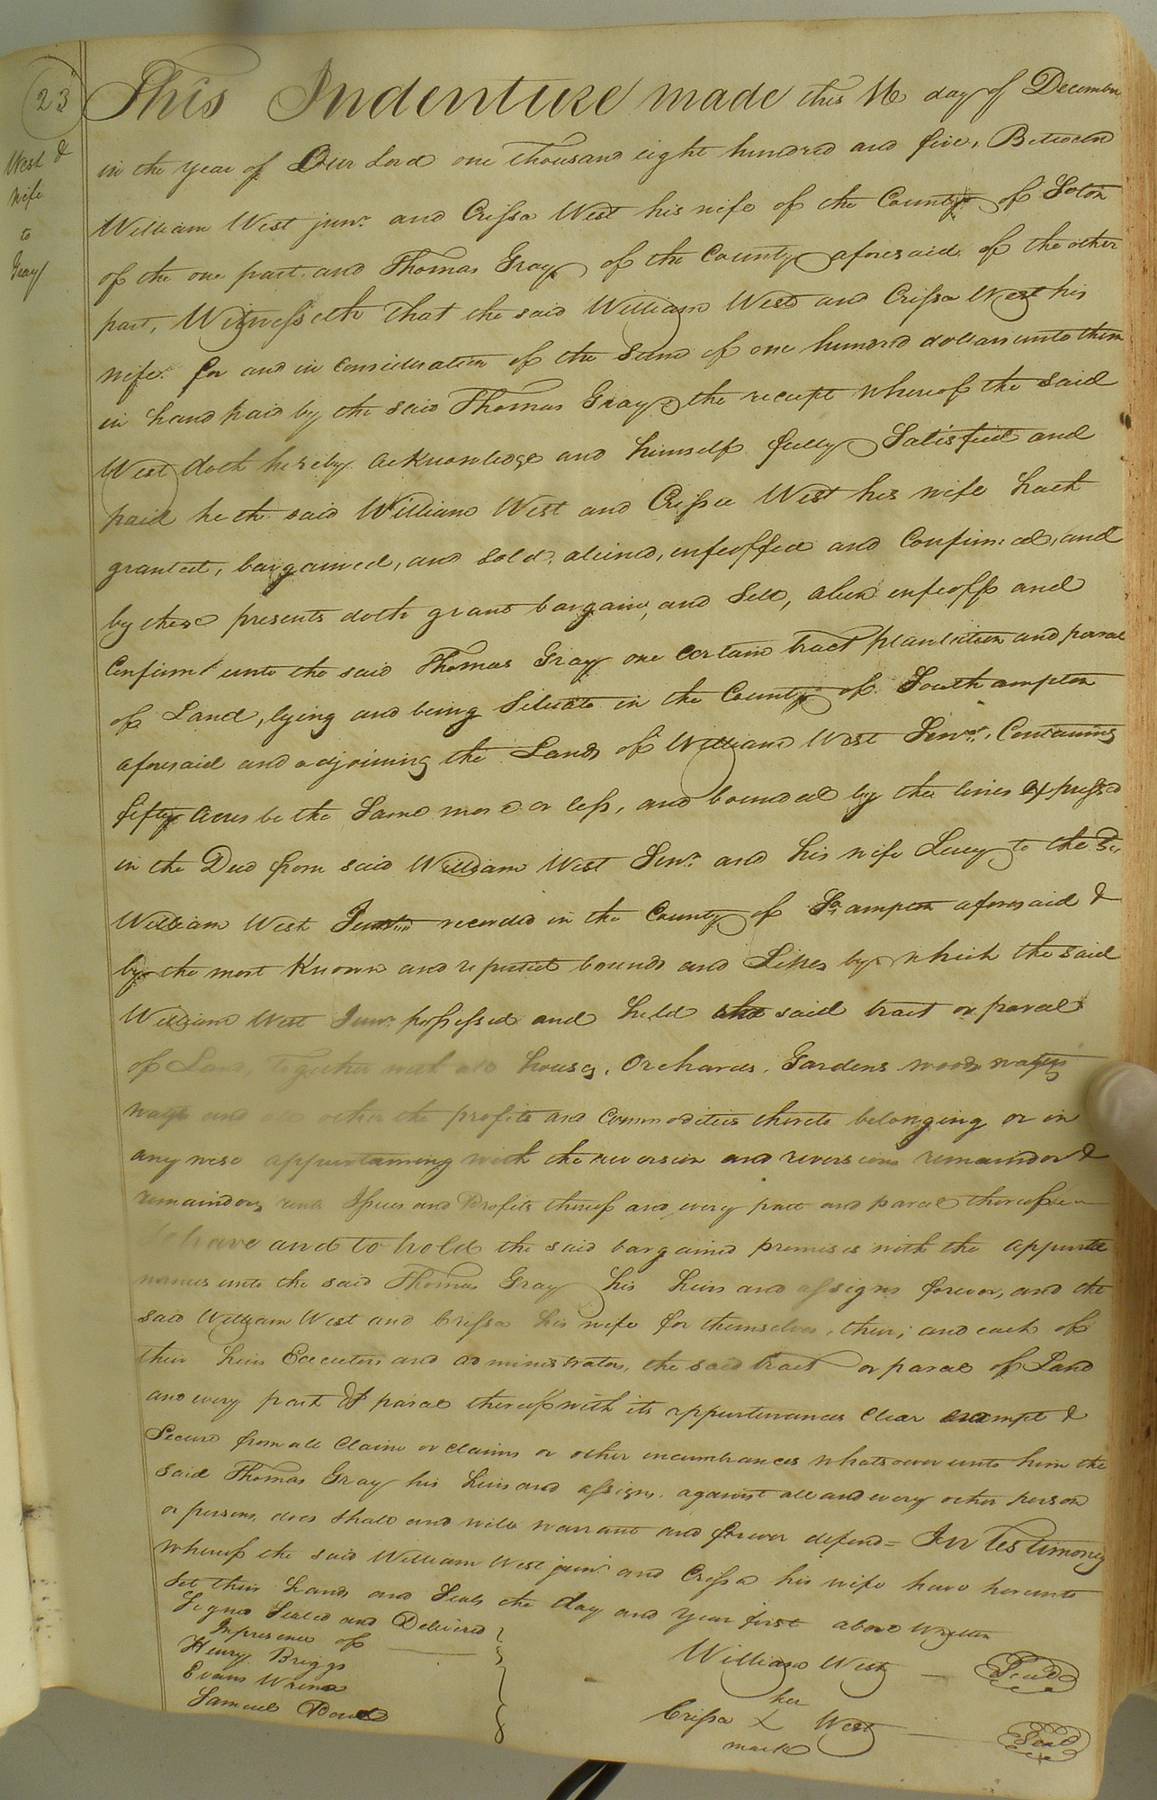 23
West &
wife
to
Gray
This Indenture made this 16 day of December
in the year of Our Lord one thousand eight hundred and five, Between
William West junr. and Crissa West his wife of the County of Soton
of the one part and Thomas Gray of the County aforesaid of the other
part, Witnesseth That the said William West and Crissa West his
wife for and in consideration of the sum of one hundred dollars unto them
in hand paid by the said Thomas Gray the receipt whereof the said
West doth hereby acknowledge and himself fully Satisfied and
paid he the said William West and Crissa West his wife hath
granted, bargained, and sold, aliened, enfeoffed and Confirmed, and
by these presents doth grant bargain, and Sell, alien enfeoff and
Confirm unto the said Thomas Gray one certain tract plantation and parcel
of Land, lying and being Situate in the County of Southampton
aforesaid and adjoining the Lands of William West Senr. Containing
fifty Acres be the Same more or less, and bounded by the lines expressed
in the Deed from said William West Senr. and his wife Lucy to the Sd.
William West Junr. recorded in the County of So. ampton aforesaid &
by the most Known and reputed bounds and Lines by which the said
William West Junr. possessed and held the said tract or parcel
of Land, together with all houses, Orchards, Gardens woods waters
ways and all other the profits and commodities thereto belonging or in
any wise appertaining with the reversion and reversions remainder &
remainders rents Issues and Profits thereof and every part and parcel thereof
To have and to hold the said bargained premises with the appurte
nances unto the said Thomas Gray his heirs and assigns forever, and the
said William West and Crissa his wife for themselves, their, and each of
their heirs Executors and administrators, the said tract or parcel of Land
and every part & parcel thereof with its appurtenances clear exempt &
Secure from all Claim or claims or other incumbrances whatsoever unto him the
said Thomas Gray his heirs and assigns against all and every other person
or persons does shall and will warrant and forever defend = In testimony
whereof the said William West junr. and Crissa his wife have hereunto
set their hands and Seals the day and year first above Written
Signed Sealed and Delivered
In presence of
Henry Briggs
Evans
Samuel
William West Seal
her
Crissa X West Seal
mark